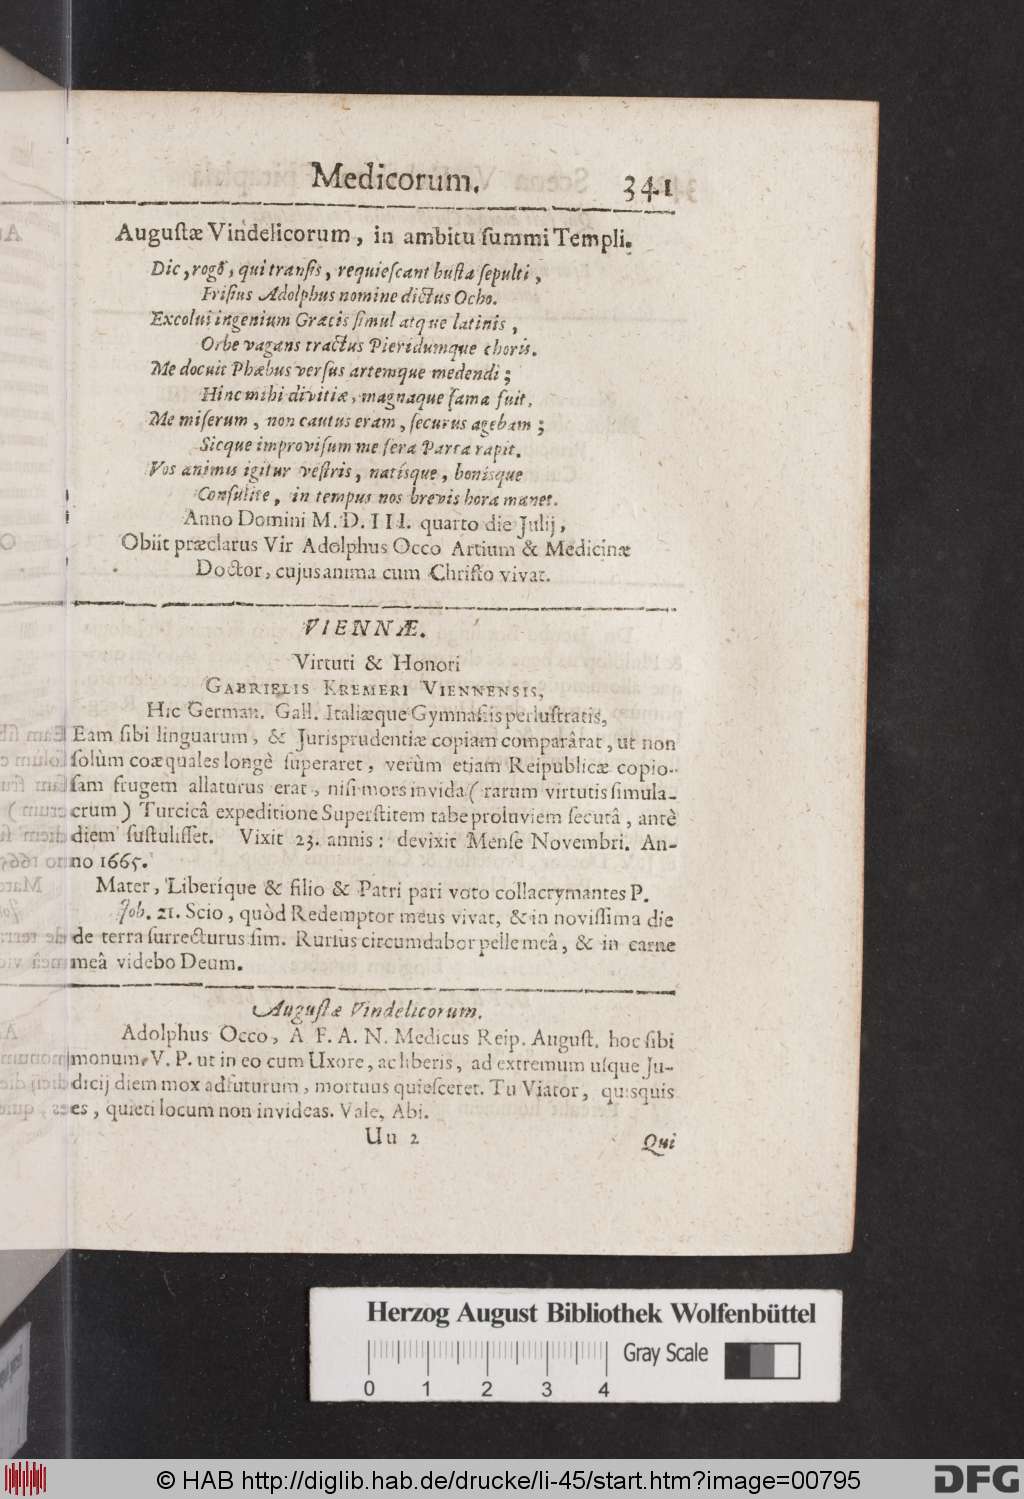 Medicorum. 341
Augustæ Vindelicorum, in ambitu summi Templi.
Dic, rogo, qui transis, requiescant busta sepulti,
Frisius Adolphus nomine dictus Ocho.
Excolui ingenium Græcis simul atque latinis,
Orbe vagans tractus Pieridumque choris.
Me docuit Phœbus versus artemque medendi;
Hinc mihi divitiæ, magnaque fama fuit,
Me miserum, non cautus eram, securus agebam;
Sicque improvisum me sera Parca rapit.
Vos animis igitur vestris, natisque, bonisque
Consulite, in tempus nos brevis hora manet.
Anno Domini M. D. III. quarto die Julij,
Obiit præclarus Vir Adolphus Occo Artium & Medicinæ
Doctor, cujus anima cum Christo vivat.
VIENNÆ.
Virtuti & Honori
GABRIELIS KREMERI VIENNENSIS,
Hic German. Gall. Italiæque Gymnasiis perlustratis,
Eam sibi linguarum, & Jurisprudentiæ copiam comparârat, ut non
solùm coæquales longè superaret, verùm etiam Reipublicæ copio-
sam frugem allaturus erat, nisi mors invida (rarum virtutis simula-
crum) Turcicâ expeditione Superstitem tabe proluviem secutâ, antè
diem sustulisset. Vixit 23. annis: devixit Mense Novembri. An-
no 1665.
Mater, Liberíque & filio & Patri pari voto collacrymantes P.
Job. 21. Scio, quòd Redemptor meus vivat, & in novissima die
de terra surrecturus sim. Rursus circumdabor pelle meâ, & in carne
meâ videbo Deum.
Augustæ Vindelicorum.
Adolphus Occo, A F. A. N. Medicus Reip. August. hoc sibi
monum. V. P. ut in eo cum Uxore, ac liberis, ad extremum usque Ju-
dicij diem mox adfuturum, mortuus quiesceret. Tu Viator, quisquis
es, quieti locum non invideas. Vale, Abi.
Uu 2 Qui
Herzog August Bibliothek Wolfenbüttel
Gray Scale
0 1 2 3 4
© HAB http://diglib.hab.de/drucke/li-45/start.htm?image=00795
DFG